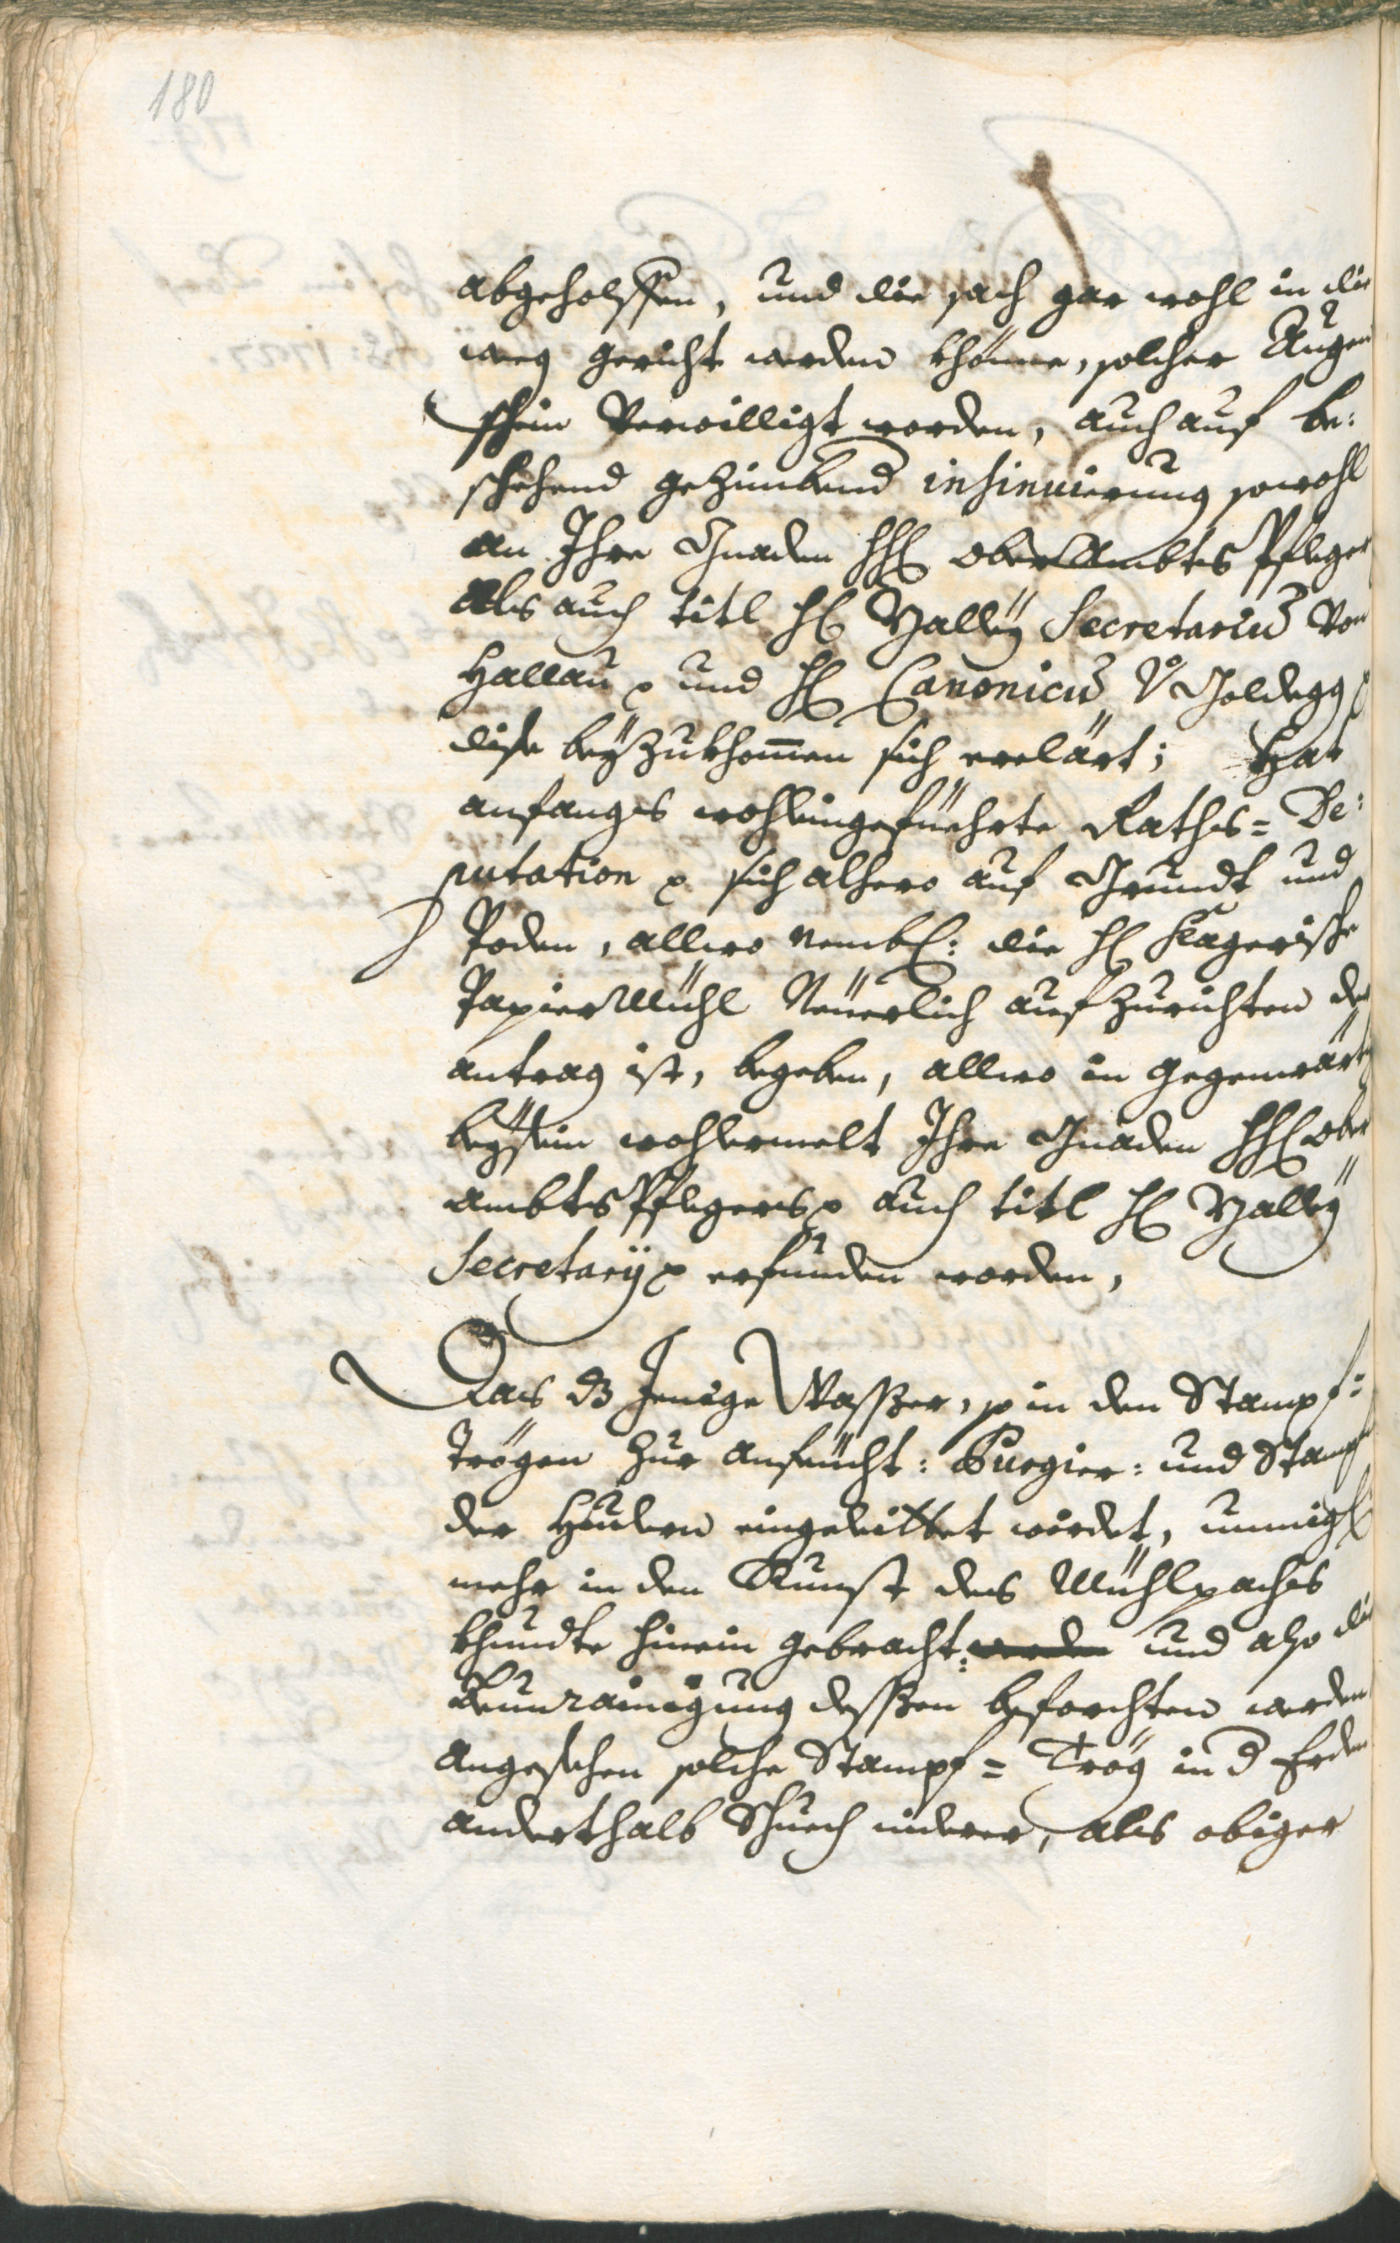 180
abgeholffen, und die sach gar wohl in die
weeg gericht werden khönne, solcher Augen
schein Verwilligt worden, auch auf be:
schehend gezimbend insinuierung sowohl
an Ihre Gnaden HH oberAmbts Pfleger
als auch titl H Valley Secretarius Von
Hallau p und H Canonicus V Goldegg
dise beyzukhomen sich erclärt; Hat
anfangs wohleingefüehrte Raths= De:
putation p sich alhero auf Grundt und
Poden, allwo nembl: die H
Papier Mühl Neüerlich aufzurichten der
antrag ist, begeben, allwo in gegenwärt
beysein wohlermelt Ihre Gnaden HH ober
ambts Pflegers p auch titl H Valley
Secretarij p erfunden worden,
Das dz Jenige Wasser, so in den Stampf=
Trögen zur anfeücht: Purgier: und Stampf
der Hudern eingeleittet wirdet, unmigl
mehr in den Runst des Mühlpachs
khundte hinein gebracht: werden und also die
Verunrainigung dessen beforchten werden
Angesehen solche Stampf= Trög in d Erden
anderthalb Schuech niderer, als obiger